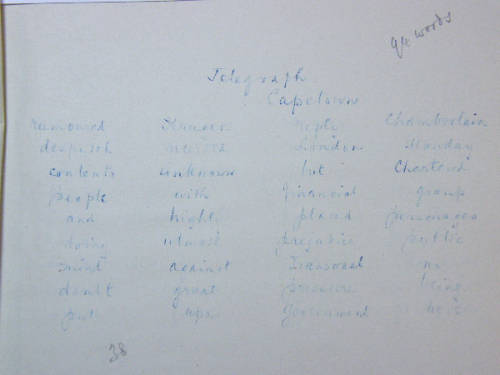 94 words
Telegraph
Capetown
rumoured Krugers reply Chamberlain
despatch London Monday
contents unknown but Chartered
people with financial group
and highly placed personages
doing utmost prejudice public
mind against Transvaal no
doubt great pressure being
put upon Government here
38